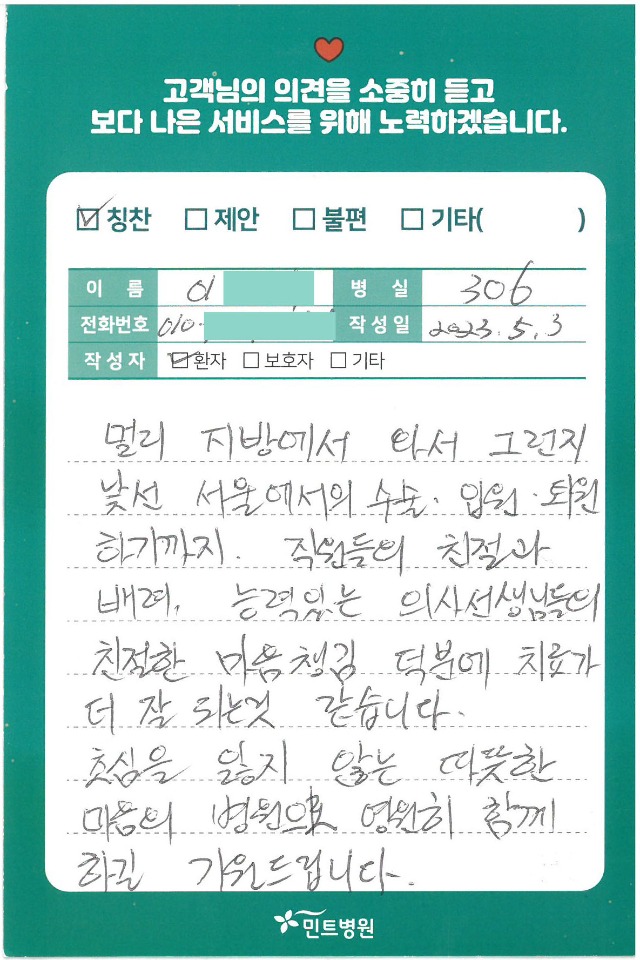 고객님의 의견을 소중히 듣고
보다 나은 서비스를 위해 노력하겠습니다.
☑ 칭찬 □ 제안 □ 불편 □ 기타( )
이 름 이 병 실 306
전화번호 010- 작성일 2023. 5. 3
작성자 ☑ 환자 □ 보호자 □ 기타
멀리 지방에서 와서 그런지
낯선 서울에서의 수술·입원·퇴원
하기까지. 직원들의 친절과
배려, 능력있는 의사선생님들의
친절한 마음챙김 덕분에 치료가
더 잘 되는것 같습니다.
초심을 잃지 않는 따뜻한
마음의 병원으로 영원히 함께
하길 기원드립니다.
민트병원